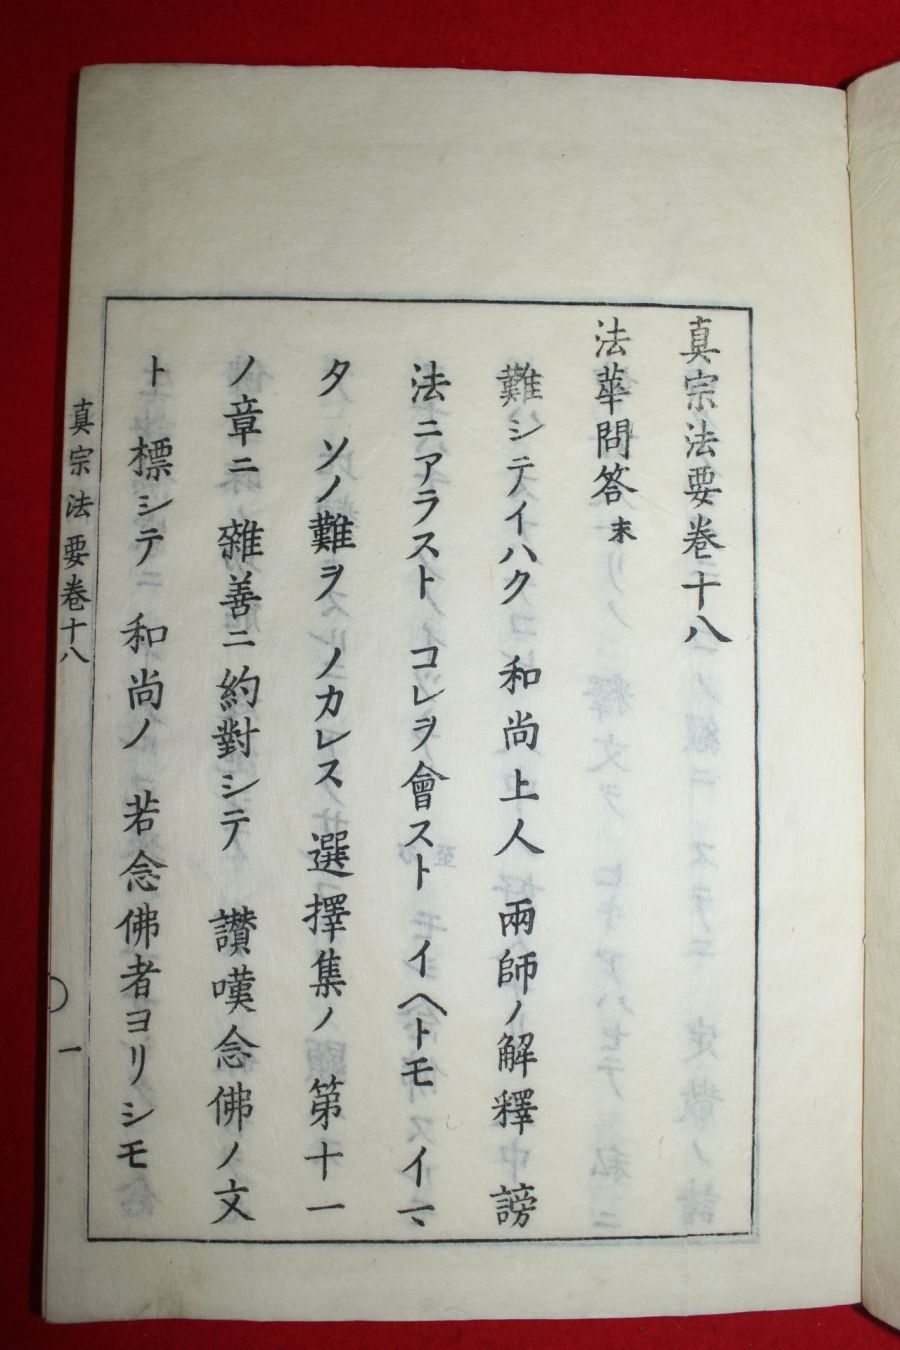 真宗法要巻十八
法華問答末
難シテイハク 和尚上人 兩師ノ解釋 謗
法ニアラスト コレヲ會ストイヘトモ イマ
タ ソノ難ヲ ノカレス 選擇集ノ 第十一
ノ章ニ 雜善ニ約對シテ 讃嘆念佛ノ文
ト 標シテ 和尚ノ 若念佛者ヨリシモ
真宗法要巻十八
一